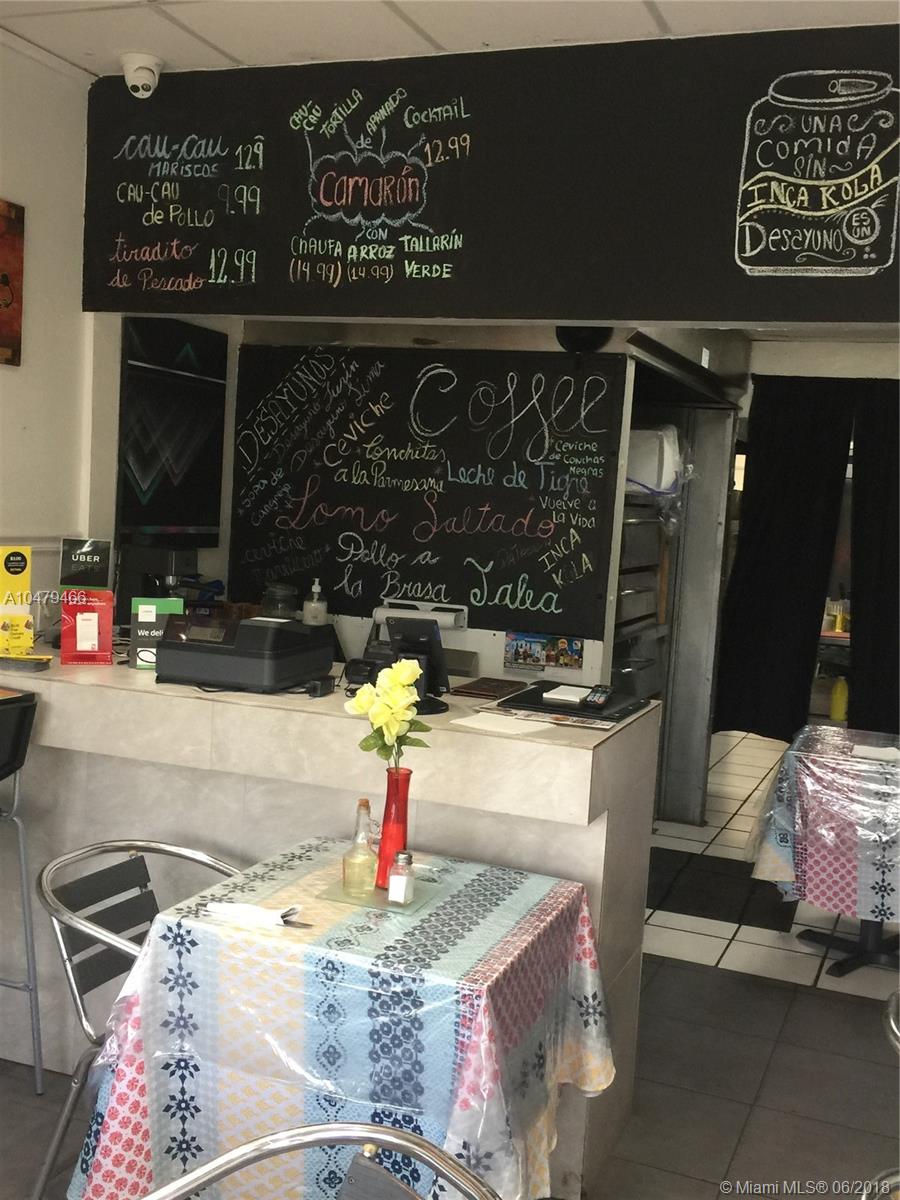 cau-cau
MARISCOS 12.9
CAU-CAU
de POLLO 9.99
tiradito
de Pescado 12.99
CAU-
CAU
TORTILLA
de
APANADO
COCKTAIL
12.99
Camarón
CON
CHAUFA ARROZ TALLARÍN
(14.99) (14.99) VERDE
UNA
COMIDA
SIN
INCA KOLA
ES
UN
Desayuno
DESAYUNOS
Desayuno
Desayuno Lima
Ceviche
Conchitas
a la Parmesana
Coffee
Ceviche
de Conchas
Negras
Leche de Tigre
SOPA de
Cangrejo
Lomo Saltado
Vuelve a
La Vida
INCA
KOLA
ceviche
Pollo a
la Brasa
Jalea
UBER
EATS
$3.00
We deli
A10479466
© Miami MLS® 06/2018